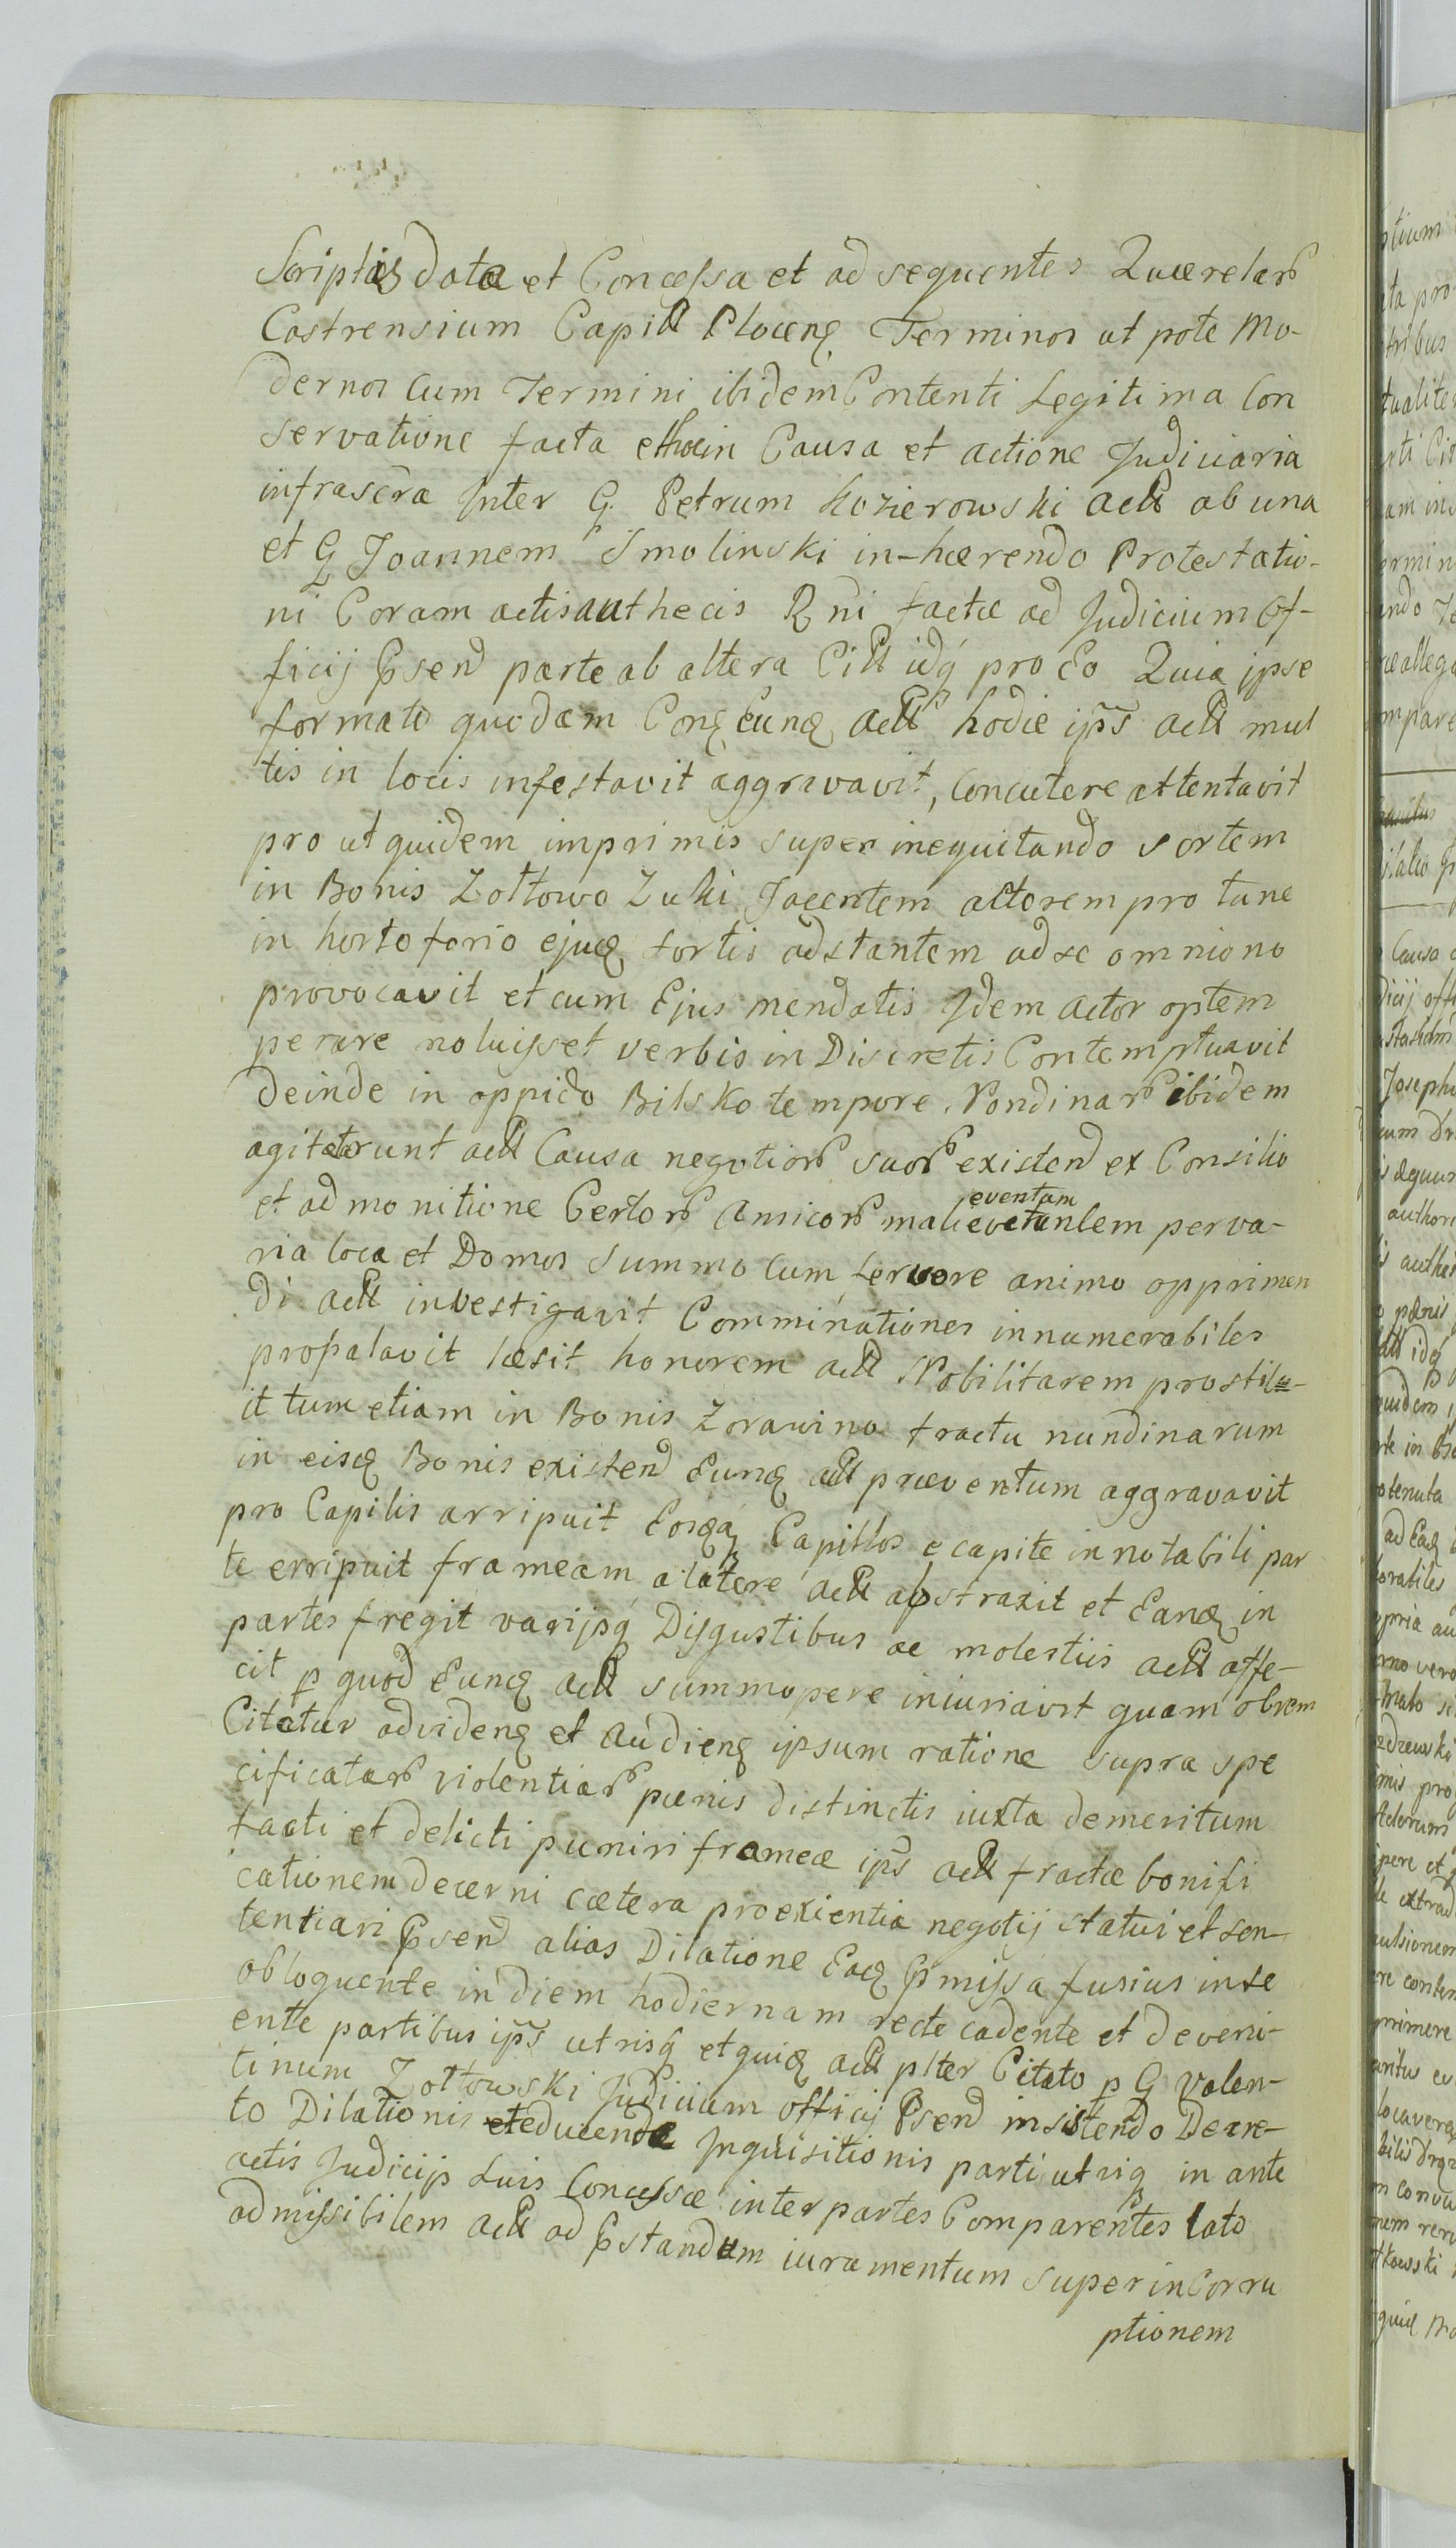 Scriptis data et Concessa et ad sequentes Quærelarꝝ
Castrensium Capitt Plocenꝫ Terminos ut pote Mo-
dernos Cum Termini ibidem Contenti Legitima Con
servatione facta et hoc in Causa et actione Judiciaria
infrascra Inter G. Petrum Kozierowski act ab una
et G Joannem Smolinski in-hærendo Protestatio-
ni Coram actis authecis ni factæ ad Judicium Of-
ficij Pñsend parte ab altera Citt idq pro Eo Quia ipse
formato quodam Eunꝫ act hodie ips act mul
tis in locis infestavit aggravavit, Concutere attentavit
pro ut quidem imprimis super inequitando sortem
in Bonis Zołtowo Zuki Jacentem actorem pro tunc
in horto forio ejusꝫ sortis adstantem ad se omnino
provocavit et cum Ejus mendatis Idem Actor optem
perare noluisset verbis in Discretis Contemptuavit
deinde in oppido Bilsko tempore Nondinarꝝ ibidem
agitatrunt act Causa negotiorꝝ suorꝝ existend ex Consilio
et admonitione Certorꝝ Amicorꝝ mali eventum per va-
ria loca et Domos Summo Cum fervore animo opprimen
di act investigavit Comminationes innumerabiles
propalavit læsit honorem act Nobilitarem prostitu-
it tum etiam in Bonis Zorawino tractu nundinarum
in eisꝫ Bonis existend Eunꝫ act præventum aggravavit
pro Capilis arripuit Eosꝫ Capillos e capite in notabili par
te erripuit frameam a latere act abstraxit et Eanꝫ in
partes fregit varijsq Disgustibus ac molestiis act affe-
cit p quod Eunꝫ act summopere iniuriavit quam obrem
Citatur ad videnꝫ et Audienꝫ ipsum ratione supra spe
cificatarꝝ violentiarꝝ pœnis distinctis iuxta demeritum
facti et delicti puniri frameæ ips act fractæ bonifi
cationem decerni cætera pro exientia negotij statui et sen-
tentiari Pñsend alias Dilatione Eaꝫ Pñmissa fusius in se
obloquente in diem hodiernam recte cadente et deveni-
ente partibus ips utrisq et quiꝫ act plter Citato p G Valen-
tinum Zołtowski Judicium officij Pñsend insistendo Decre-
to Dilationis et educendæ Inquisitionis parti utriq in ante
actis Judicijs Suis Concessæ inter partes Comparentes lato
admissibilem act ad Pñstandum iuramentum super in Corru
ptionem